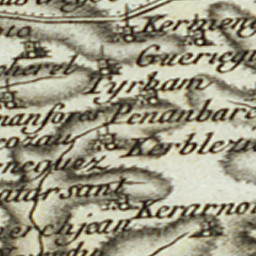 Kermeng
Gueriegu
cherel
Tyrham
manfores Penanbar
cozau
Kerblezu
neguez
atarsant
Kerarno
erchjean